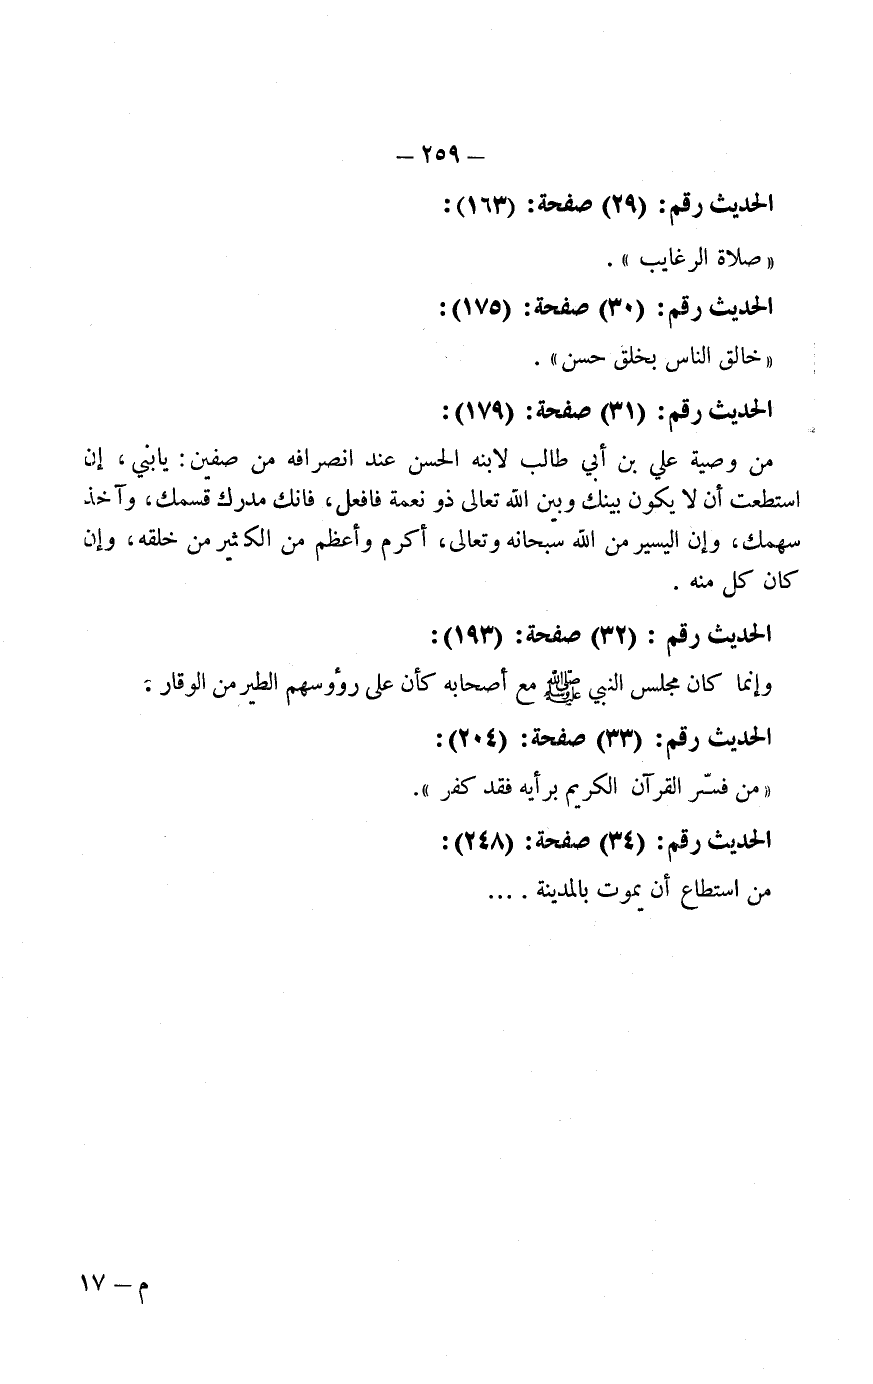 — ٢٥٩ —
الحديث رقم: (٢٩) صفحة: (١٦٣):
« صلاة الرغايب » .
الحديث رقم: (٣٠) صفحة: (١٧٥):
« خالق الناس بخلق حسن» .
الحديث رقم: (٣١) صفحة: (١٧٩):
من وصية علي بن أبي طالب لابنه الحسن عند انصرافه من صفين: يابني، إن
استطعت أن لا يكون بينك وبين الله تعالى ذو نعمة فافعل، فانك مدرك قسمك، وآخذ
سهمك، وإن اليسير من الله سبحانه وتعالى، أكرم وأعظم من الكثير من خلقه، وإن
كان كل منه .
الحديث رقم : (٣٢) صفحة: (١٩٣):
وإنما كان مجلس النبي ﷺ مع أصحابه كأن على روؤسهم الطير من الوقار .
الحديث رقم: (٣٣) صفحة: (٢٠٤):
« من فسّر القرآن الكريم برأيه فقد كفر ».
الحديث رقم: (٣٤) صفحة: (٢٤٨):
من استطاع أن يموت بالمدينة . ...
م — ١٧